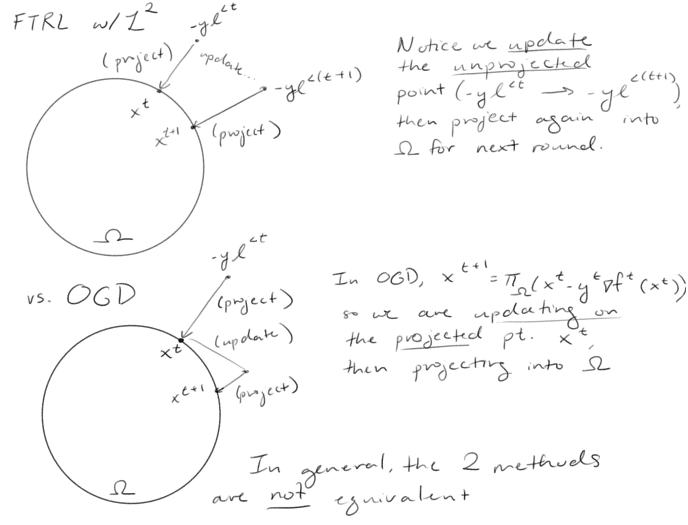 FTRL w/ L²
-yl^{<t}
(project)
update...
-yl^{<(t+1)}
x^t
x^{t+1}
(project)
Ω
Notice we update
the unprojected
point (-yl^{<t} → -yl^{<(t+1)}),
then project again into
Ω for next round.
vs. OGD
-yl^{<t}
(project)
(update)
x^t
x^{t+1}
(project)
Ω
In OGD, x^{t+1} = π_Ω(x^t - y^t ∇f^t(x^t))
so we are updating on
the projected pt. x^t,
then projecting into Ω
In general, the 2 methods
are not equivalent